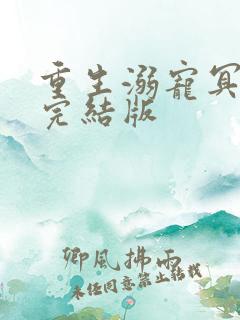 重生溺寵冥
完結版
卿風拂雨
未经同意禁止转载